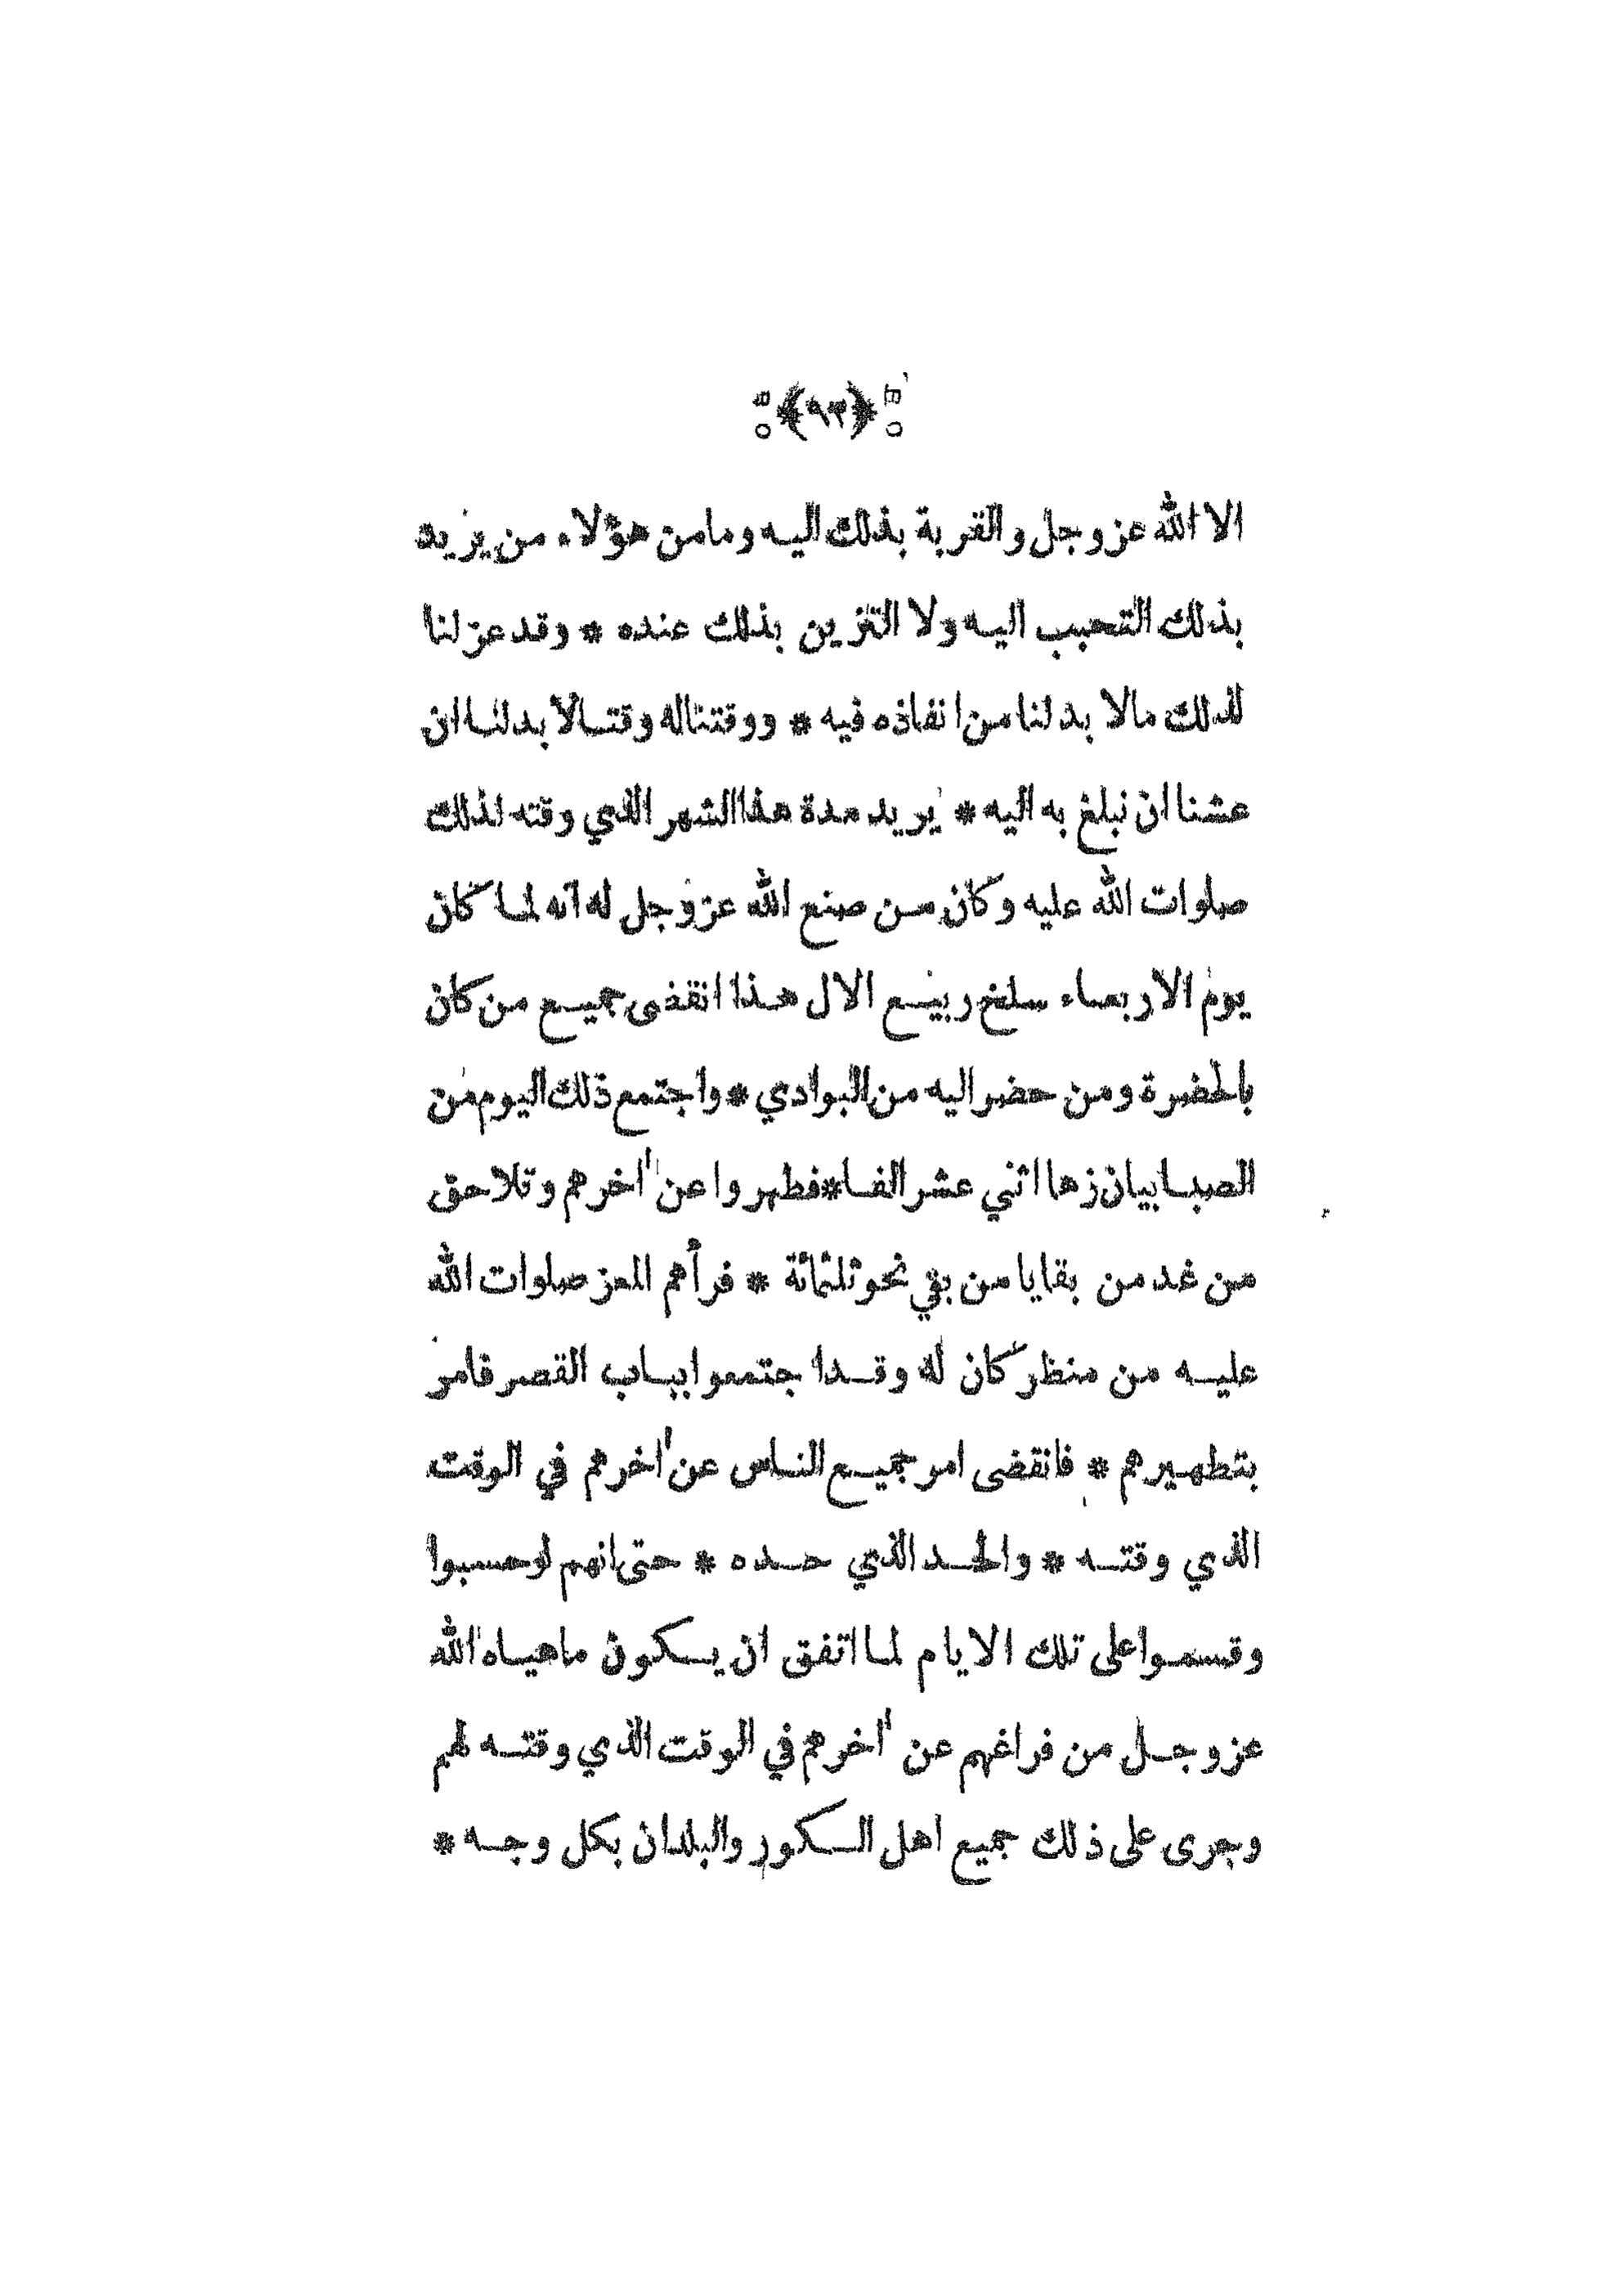 ﴿٩٣﴾
الا الله عز وجل والقربة بذلك اليه وما من هؤلاء من يريد
بذلك التحبب اليه ولا التزين بذلك عنده * وقد عزلنا
لذلك مالا بد لنا من انفاذه فيه * ووقتناله وقتا لا بد لنا ان
عشنا ان نبلغ به اليه * يريد مدة هذا الشهر الذي وقته لذلك
صلوات الله عليه وكان من صنع الله عز وجل له انه لما كان
يوم الاربعاء سلخ ربيع الال هذا انقضى جميع من كان
بالحضرة ومن حضر اليه من البوادي * واجتمع ذلك اليوم من
الصبابيان زها اثني عشر الفا * فطهروا عن اٰخرهم وتلاحق
من غد من بقايا من بقي نحو ثلثمائة * فرأهم المعز صلوات الله
عليه من منظر كان له وقد اجتمعوا بباب القصر فامر
بتطهيرهم * فانقضى امر جميع الناس عن اٰخرهم في الوقت
الذي وقته * والحد الذي حده * حتى انهم لو حسبوا
وقسموا على تلك الايام لما اتفق ان يكون ما هياه الله
عز وجل من فراغهم عن اٰخرهم في الوقت الذي وقته لهم
وجرى على ذلك جميع اهل الكور والبلدان بكل وجه *